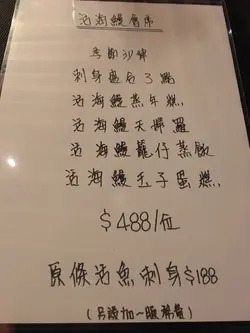 活海鰻會席
季節沙律
刺身盛合3點
活海鰻蒸年糕
活海鰻天婦羅
活海鰻籠仔蒸飯
活海鰻玉子蛋糕
$488/位
原條活魚刺身$188
(另設加一服務費)